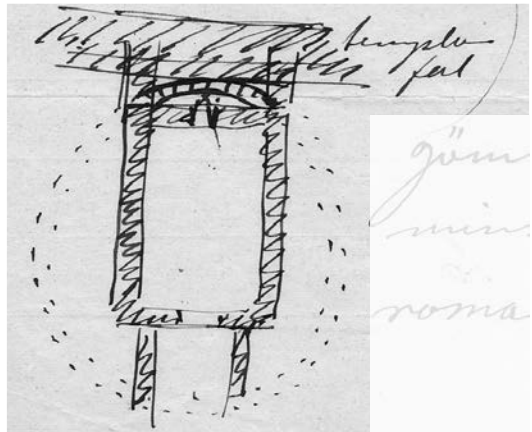 templom
fal
göm
mins
roma